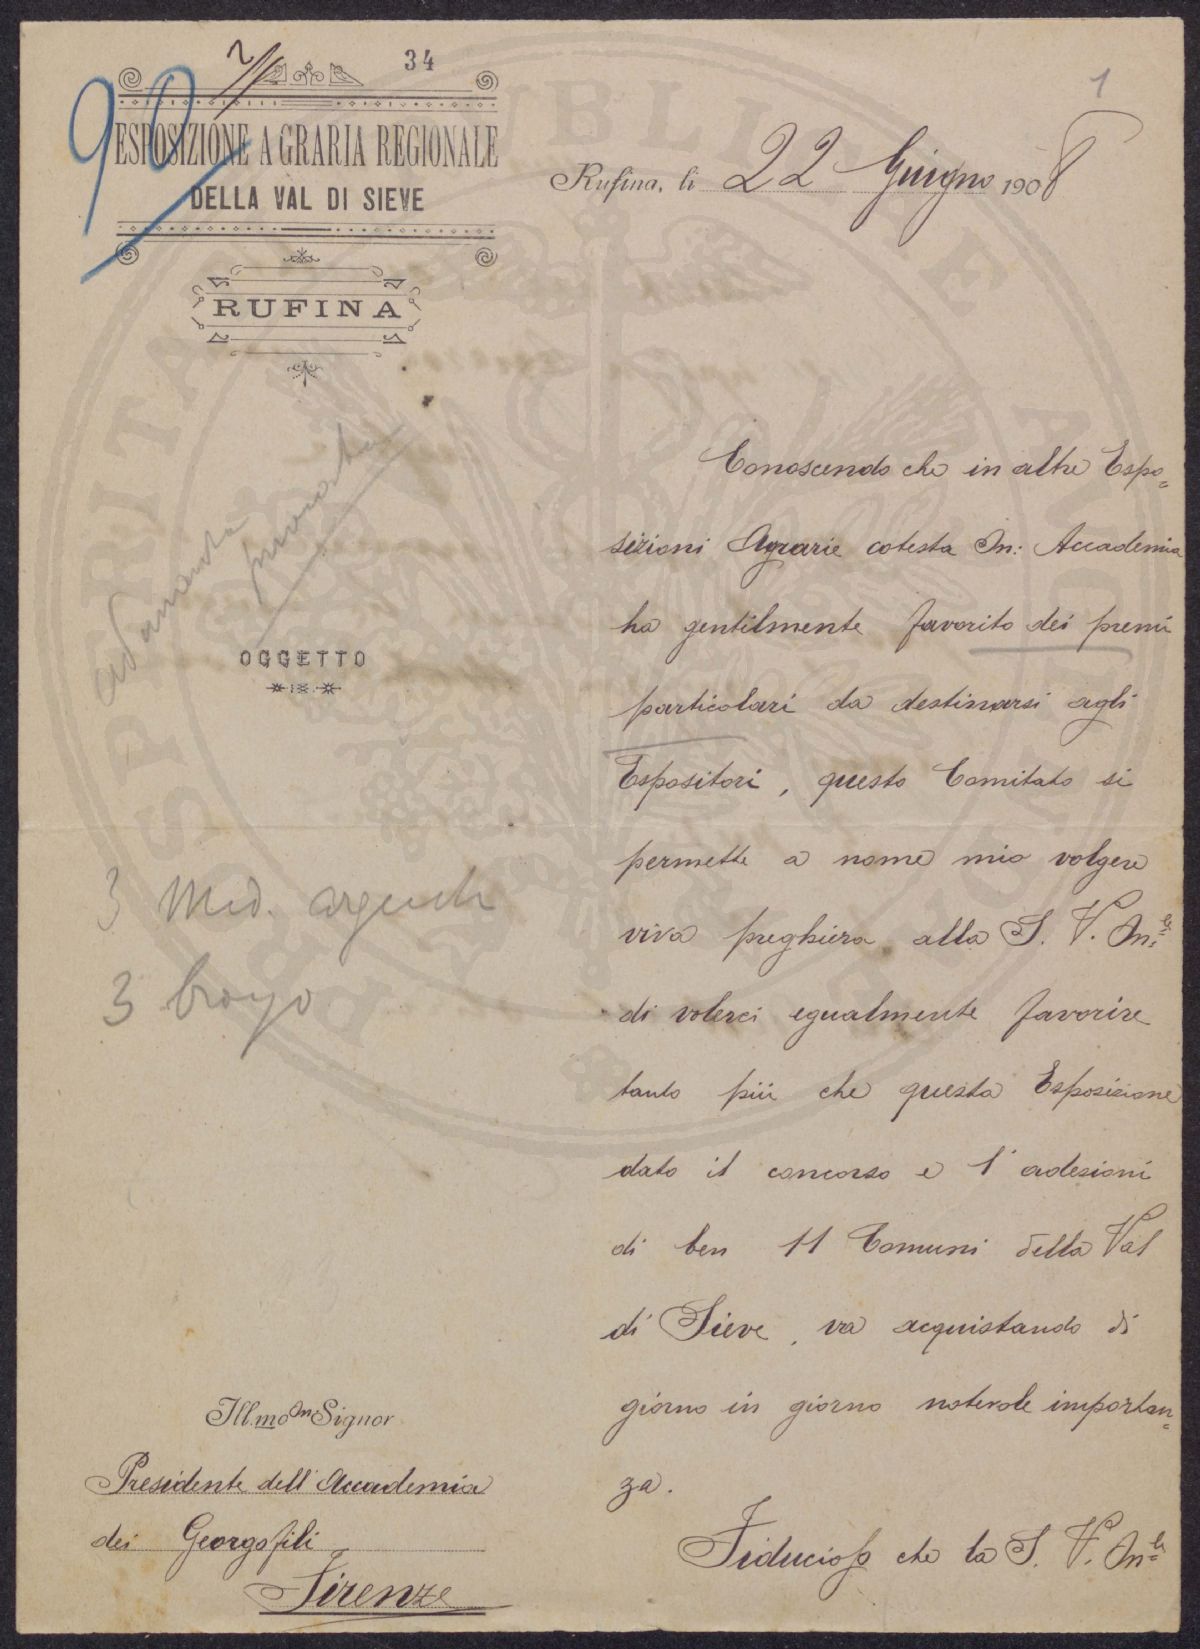 34
1
90
ESPOSIZIONE AGRARIA REGIONALE
DELLA VAL DI SIEVE
RUFINA
Rufina, li 22 Giugno 1908
adunanza privata
OGGETTO
3 Med. argento
3 bronzo
Conoscendo che in altre Espo=
sizioni Agrarie cotesta On: Accademia
ha gentilmente favorito dei premi
particolari da destinarsi agli
Espositori, questo Comitato si
permette a nome mio volgere
viva preghiera alla S. V. On:le
di volerci egualmente favorire
tanto più che questa Esposizione
dato il concorso e l'adesioni
di ben 11 Comuni della Val
di Sieve, va acquistando di
giorno in giorno notevole importan=
za.
Fiducioso che la S. V. On=le
Ill.mo On Signor
Presidente dell'Accademia
dei Georgofili
Firenze